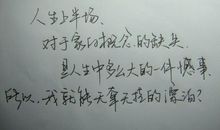 人生上半场、
对于家的概念的缺失
是人生中多么大的一件憾事
所以、我就能大摇大摆的漂泊?